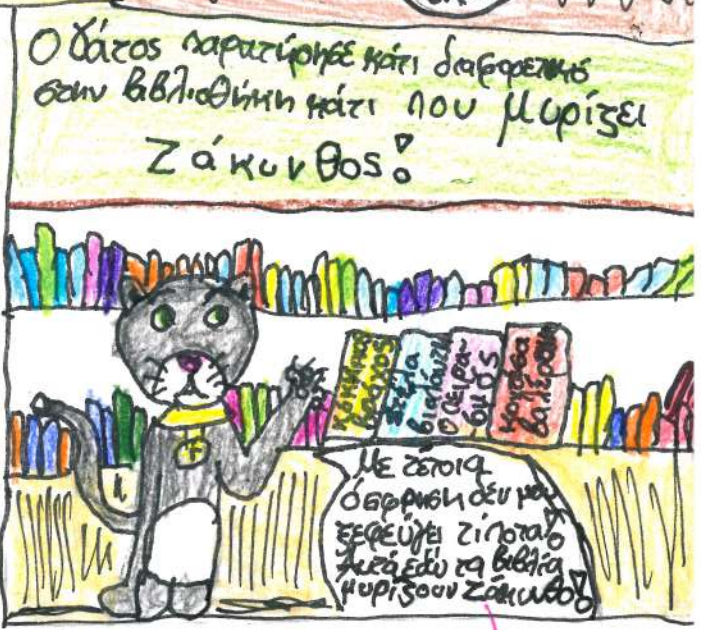 Ο Γάτος παρατήρησε κάτι διαφορετικό
στην βιβλιοθήκη κάτι που μυρίζει
Ζάκυνθος!
Κόκκινος
βράχος
βιολάντη
Ο πειρα-
σμός
βαλέραινα
F
Με τέτοια
όσφρηση δεν μου
ξεφεύγει τίποτα!
Αυτά εδώ τα βιβλία
μυρίζουν Ζάκυνθο!